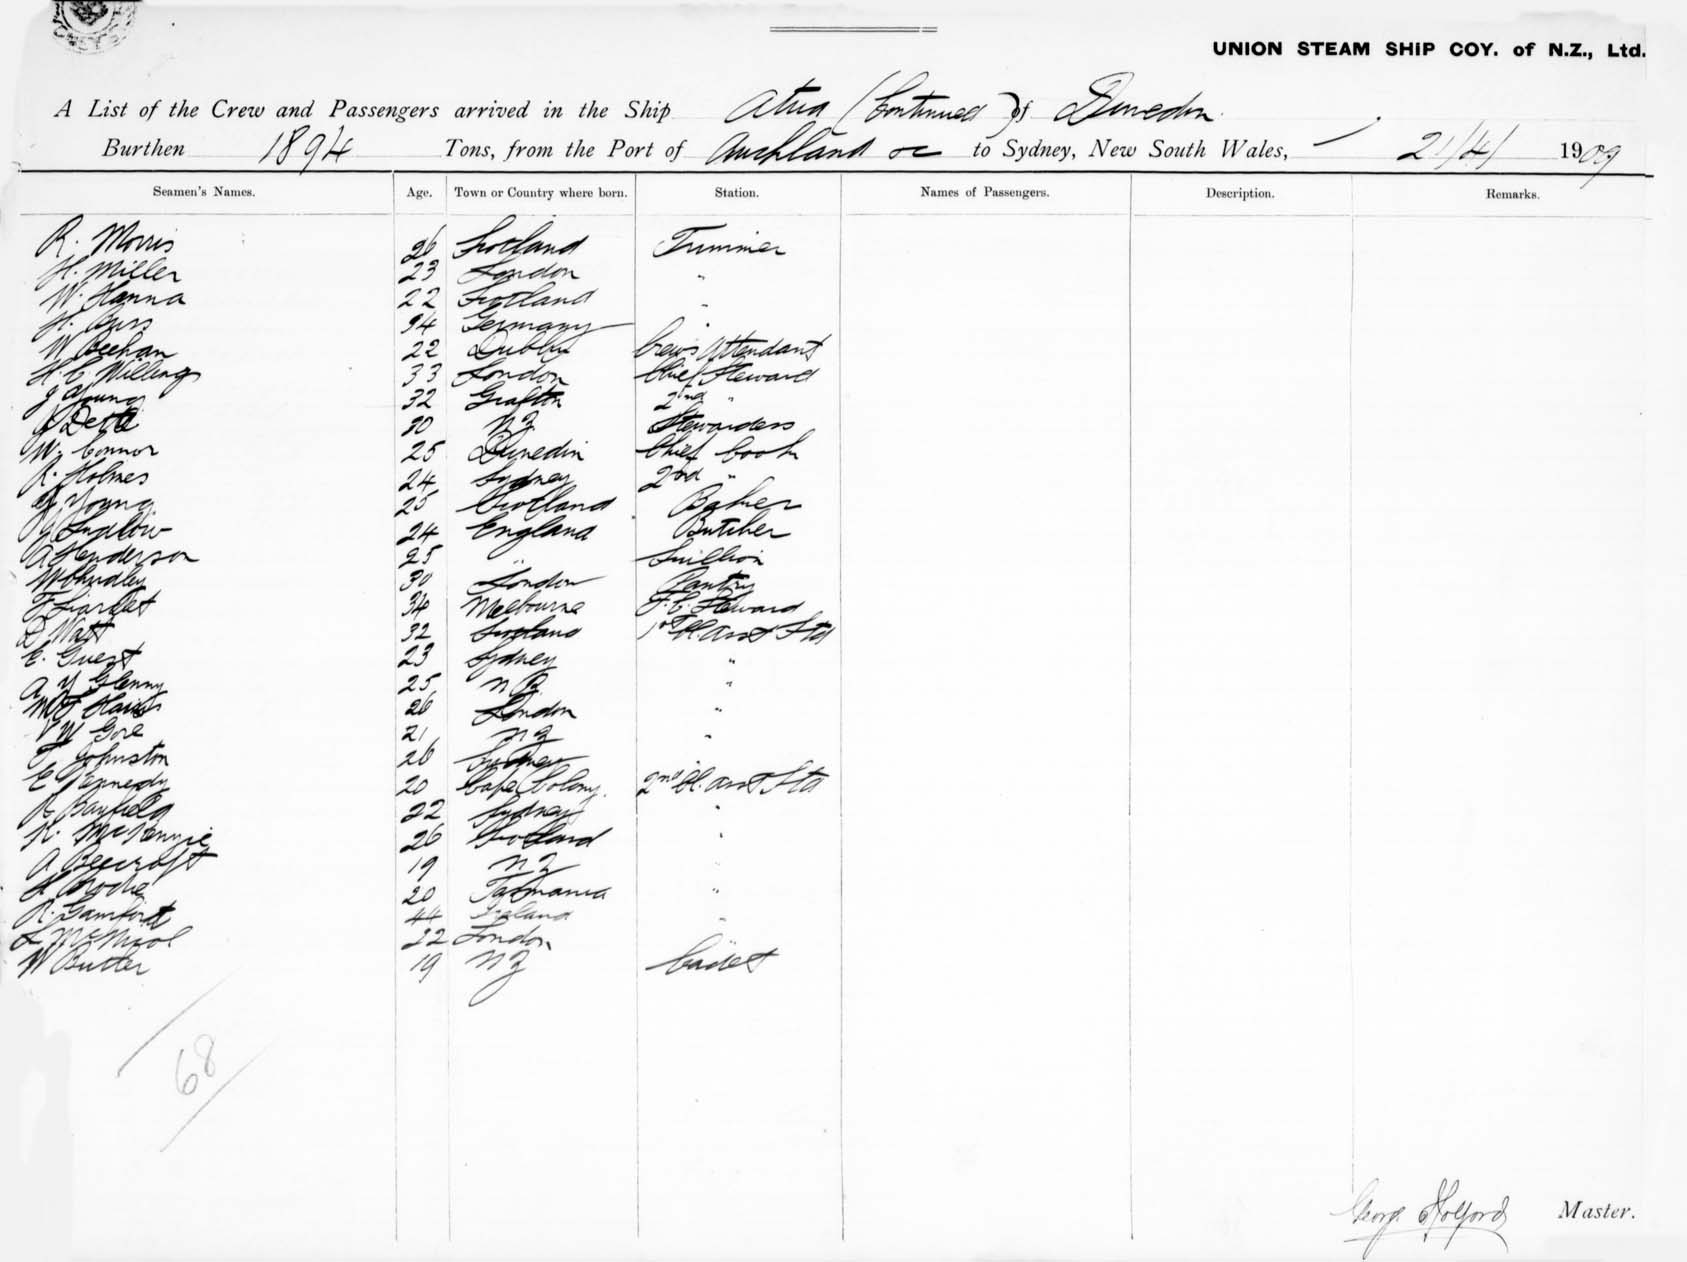 UNION STEAM SHIP COY. of N.Z., Ltd.
A List of the Crew and Passengers arrived in the Ship Atua (Continued) of Dunedin.
Burthen 1894 Tons, from the Port of Auckland &c to Sydney, New South Wales, 21/4/ 1909
Seamen's Names. Age. Town or Country where born. Station. Names of Passengers. Description. Remarks.
R. Morris 26 Scotland Trimmer
H. Miller 23 London "
W. Hanna 22 Scotland "
H. 34 Germany "
W Beehan 22 Dublin Crew's Attendant
H. C. Willing 33 London Chief Steward
J Young 32 Grafton 2nd "
30 NZ Stewardess
W. Connor 25 Dunedin Chief Cook
R. Holmes 24 Sydney 2nd "
Young 25 Scotland Baker
Ludlow 24 England Butcher
A Henderson 25 " Scullion
W Chudley 30 London Pantry
F 34 Melbourne F. C. Steward
D Watt 32 Scotland 1st Cl. Asst Std
E. Guest 23 Sydney "
A Y Glenny 25 NZ "
26 London "
V W Gore 21 NZ "
F Johnston 26 Sydney
E Kennedy 20 Cape Colony. 2nd Cl. Asst Std
R Bayfield 22 Sydney "
K. McKenzie 26 Scotland "
A Beecroft 19 NZ "
H Brodie 20 Tasmania "
R. 44 Ireland "
L McNicol 22 London
W Butler 19 NZ Cadet
68
George Holford Master.